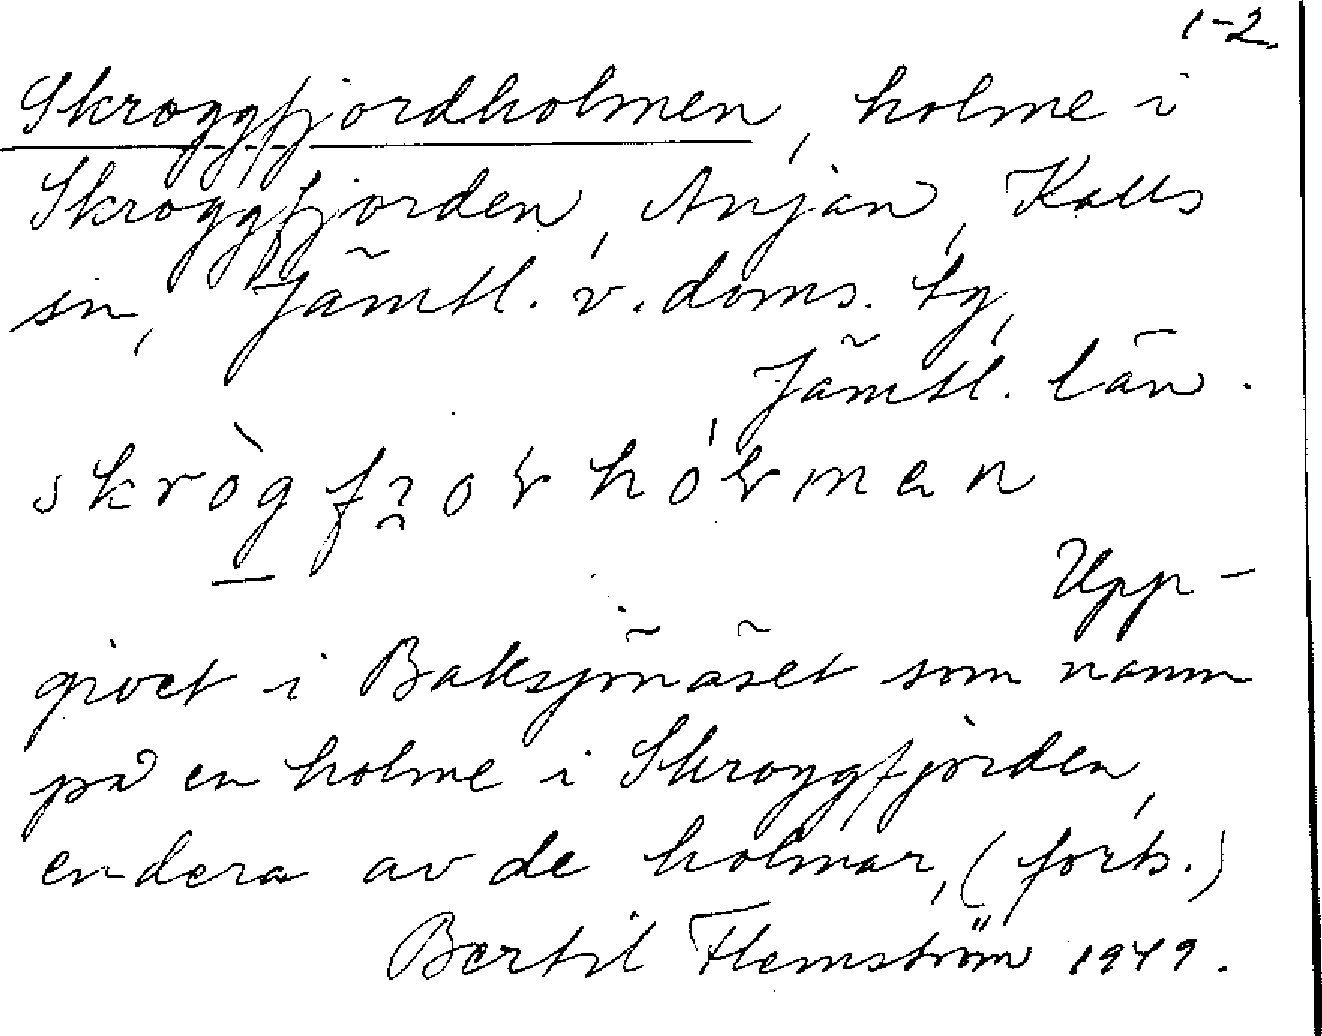 1-2.
Skroggfjordholmen, holme i
Skroggfjorden, Anjan, Kalls
sn, Jämtl. v. doms. tg,
Jämtl. län.
Upp-
givet i Baksjönäset som namn
på en holme i Skroggfjorden,
endera av de holmar, (forts.)
Bertil Flemström 1949.